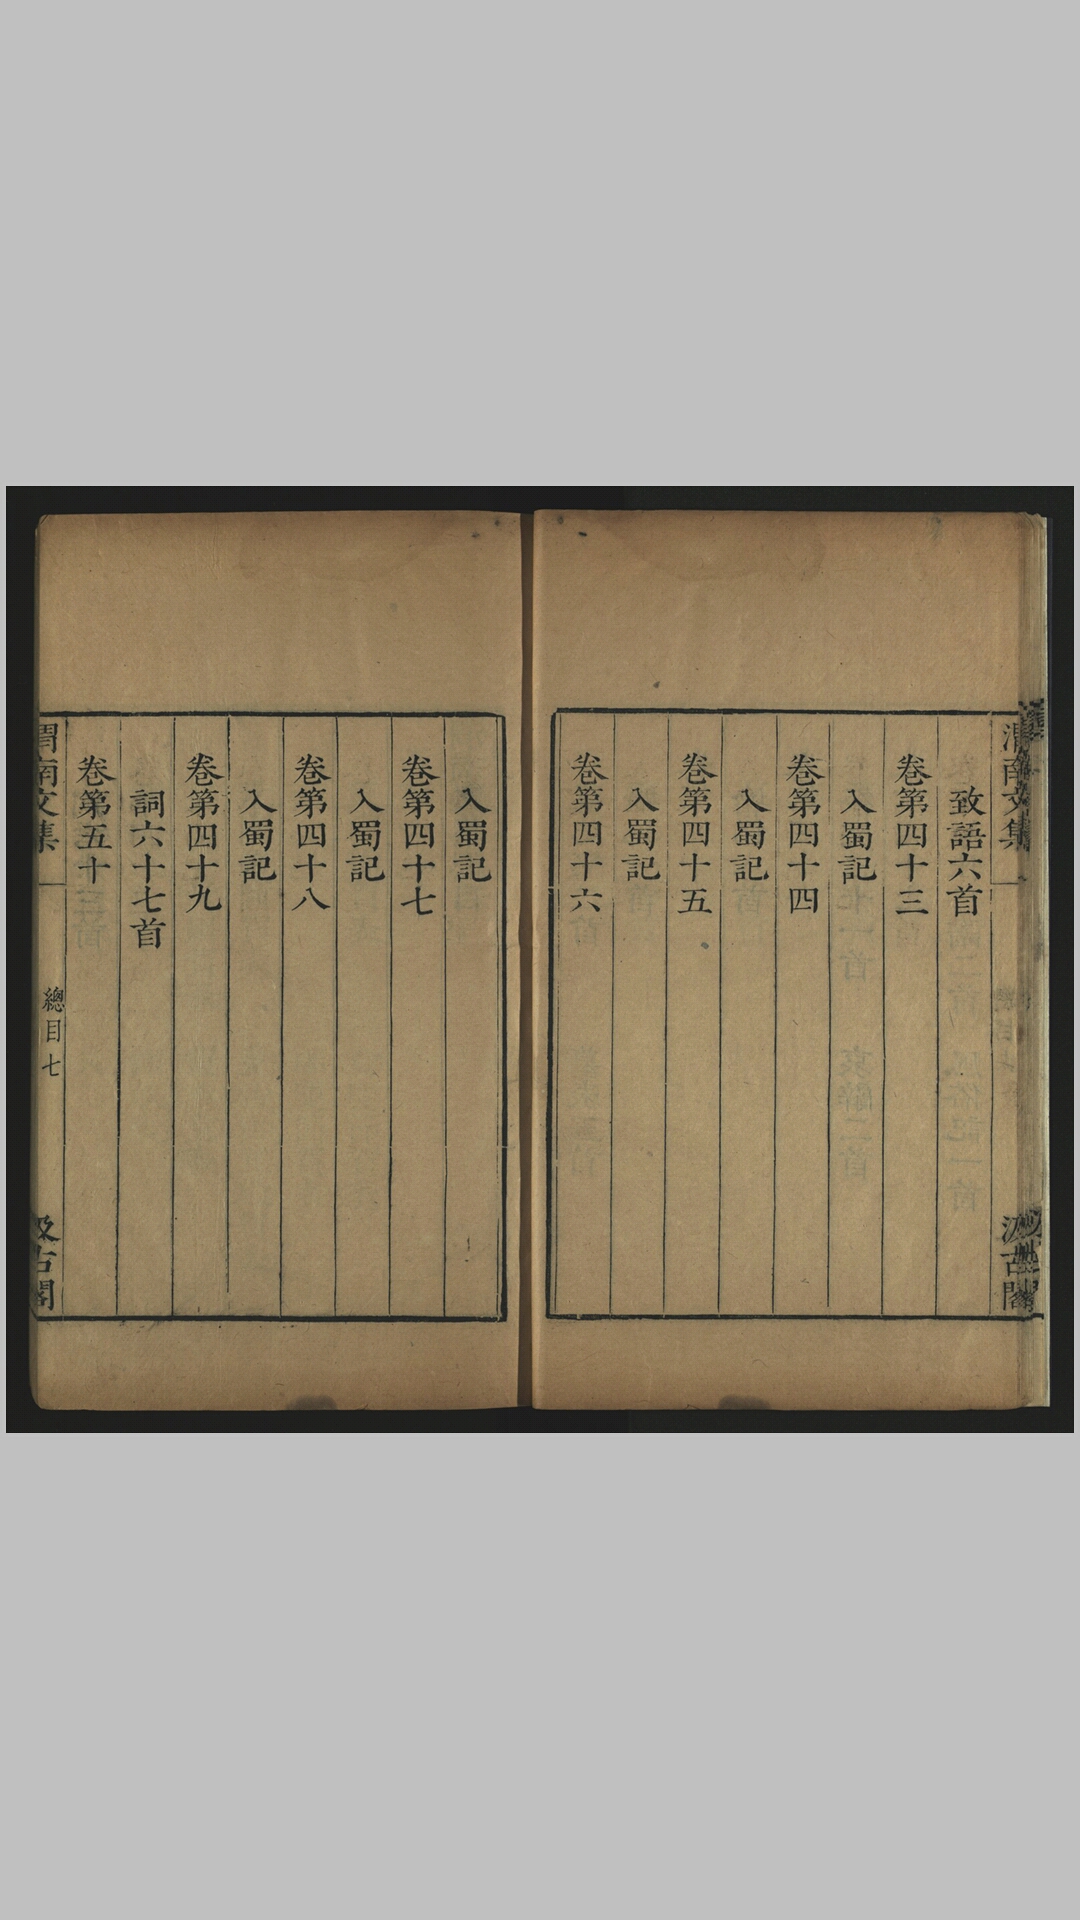 渭南文集
汲古閣
致語六首
卷第四十三
入蜀記
卷第四十四
入蜀記
卷第四十五
入蜀記
卷第四十六
入蜀記
卷第四十七
入蜀記
卷第四十八
入蜀記
卷第四十九
詞六十七首
卷第五十
渭南文集
總目七
汲古閣